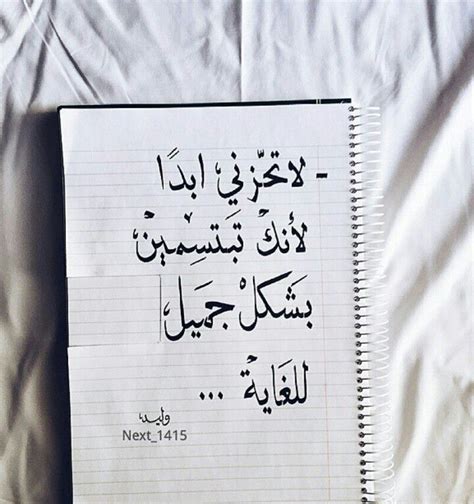 - لا تحّزني ابدًا
لأنكَ تبتسمين
بشكلْ جميل
للغَاية ...
وليد
Next_1415